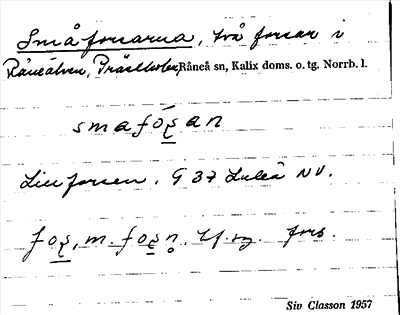 Småforsarna, två forsar i
Råneälven, Prästholm, Råneå sn, Kalix doms. o. tg. Norrb. l.
smafo̱s̱an
Lill forsen. G 37 Luleå NV.
fos̱, m. fos̱n̥. fors.
Siv Classon 1957